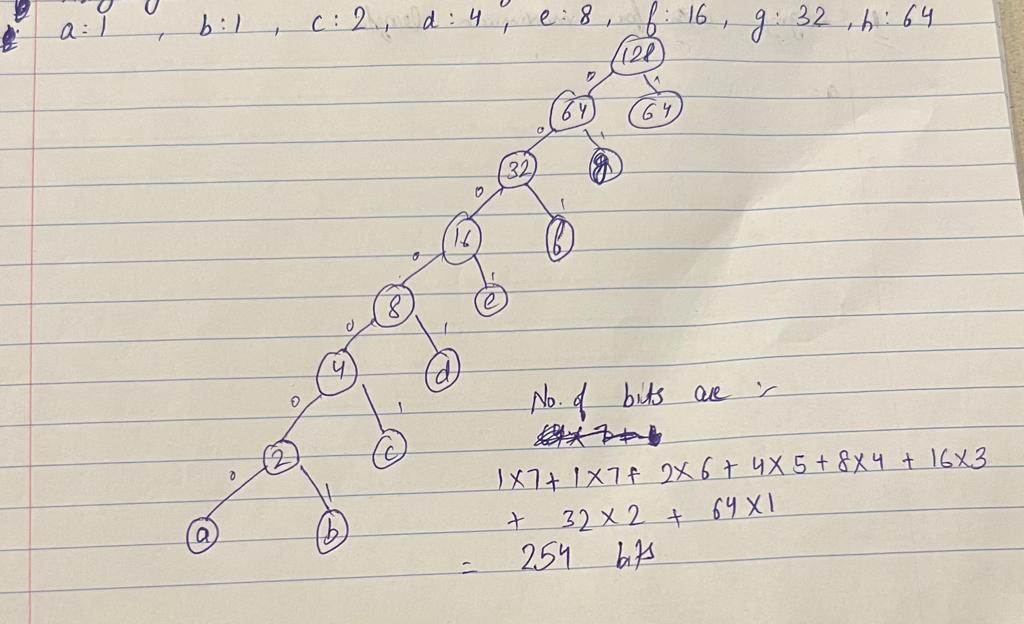 a:1 , b:1 , c:2 , d:4 , e:8 , f:16 , g:32 , h:64
128
0 1
64 64
0 1
32 g
0 1
16 f
0 1
8 e
0 1
4 d
0 1
2 c
0 1
a b
No. of bits are :-
1x7+ 1x7+ 2x6+ 4x5+8x4 + 16x3
+ 32x2 + 64x1
= 254 bits